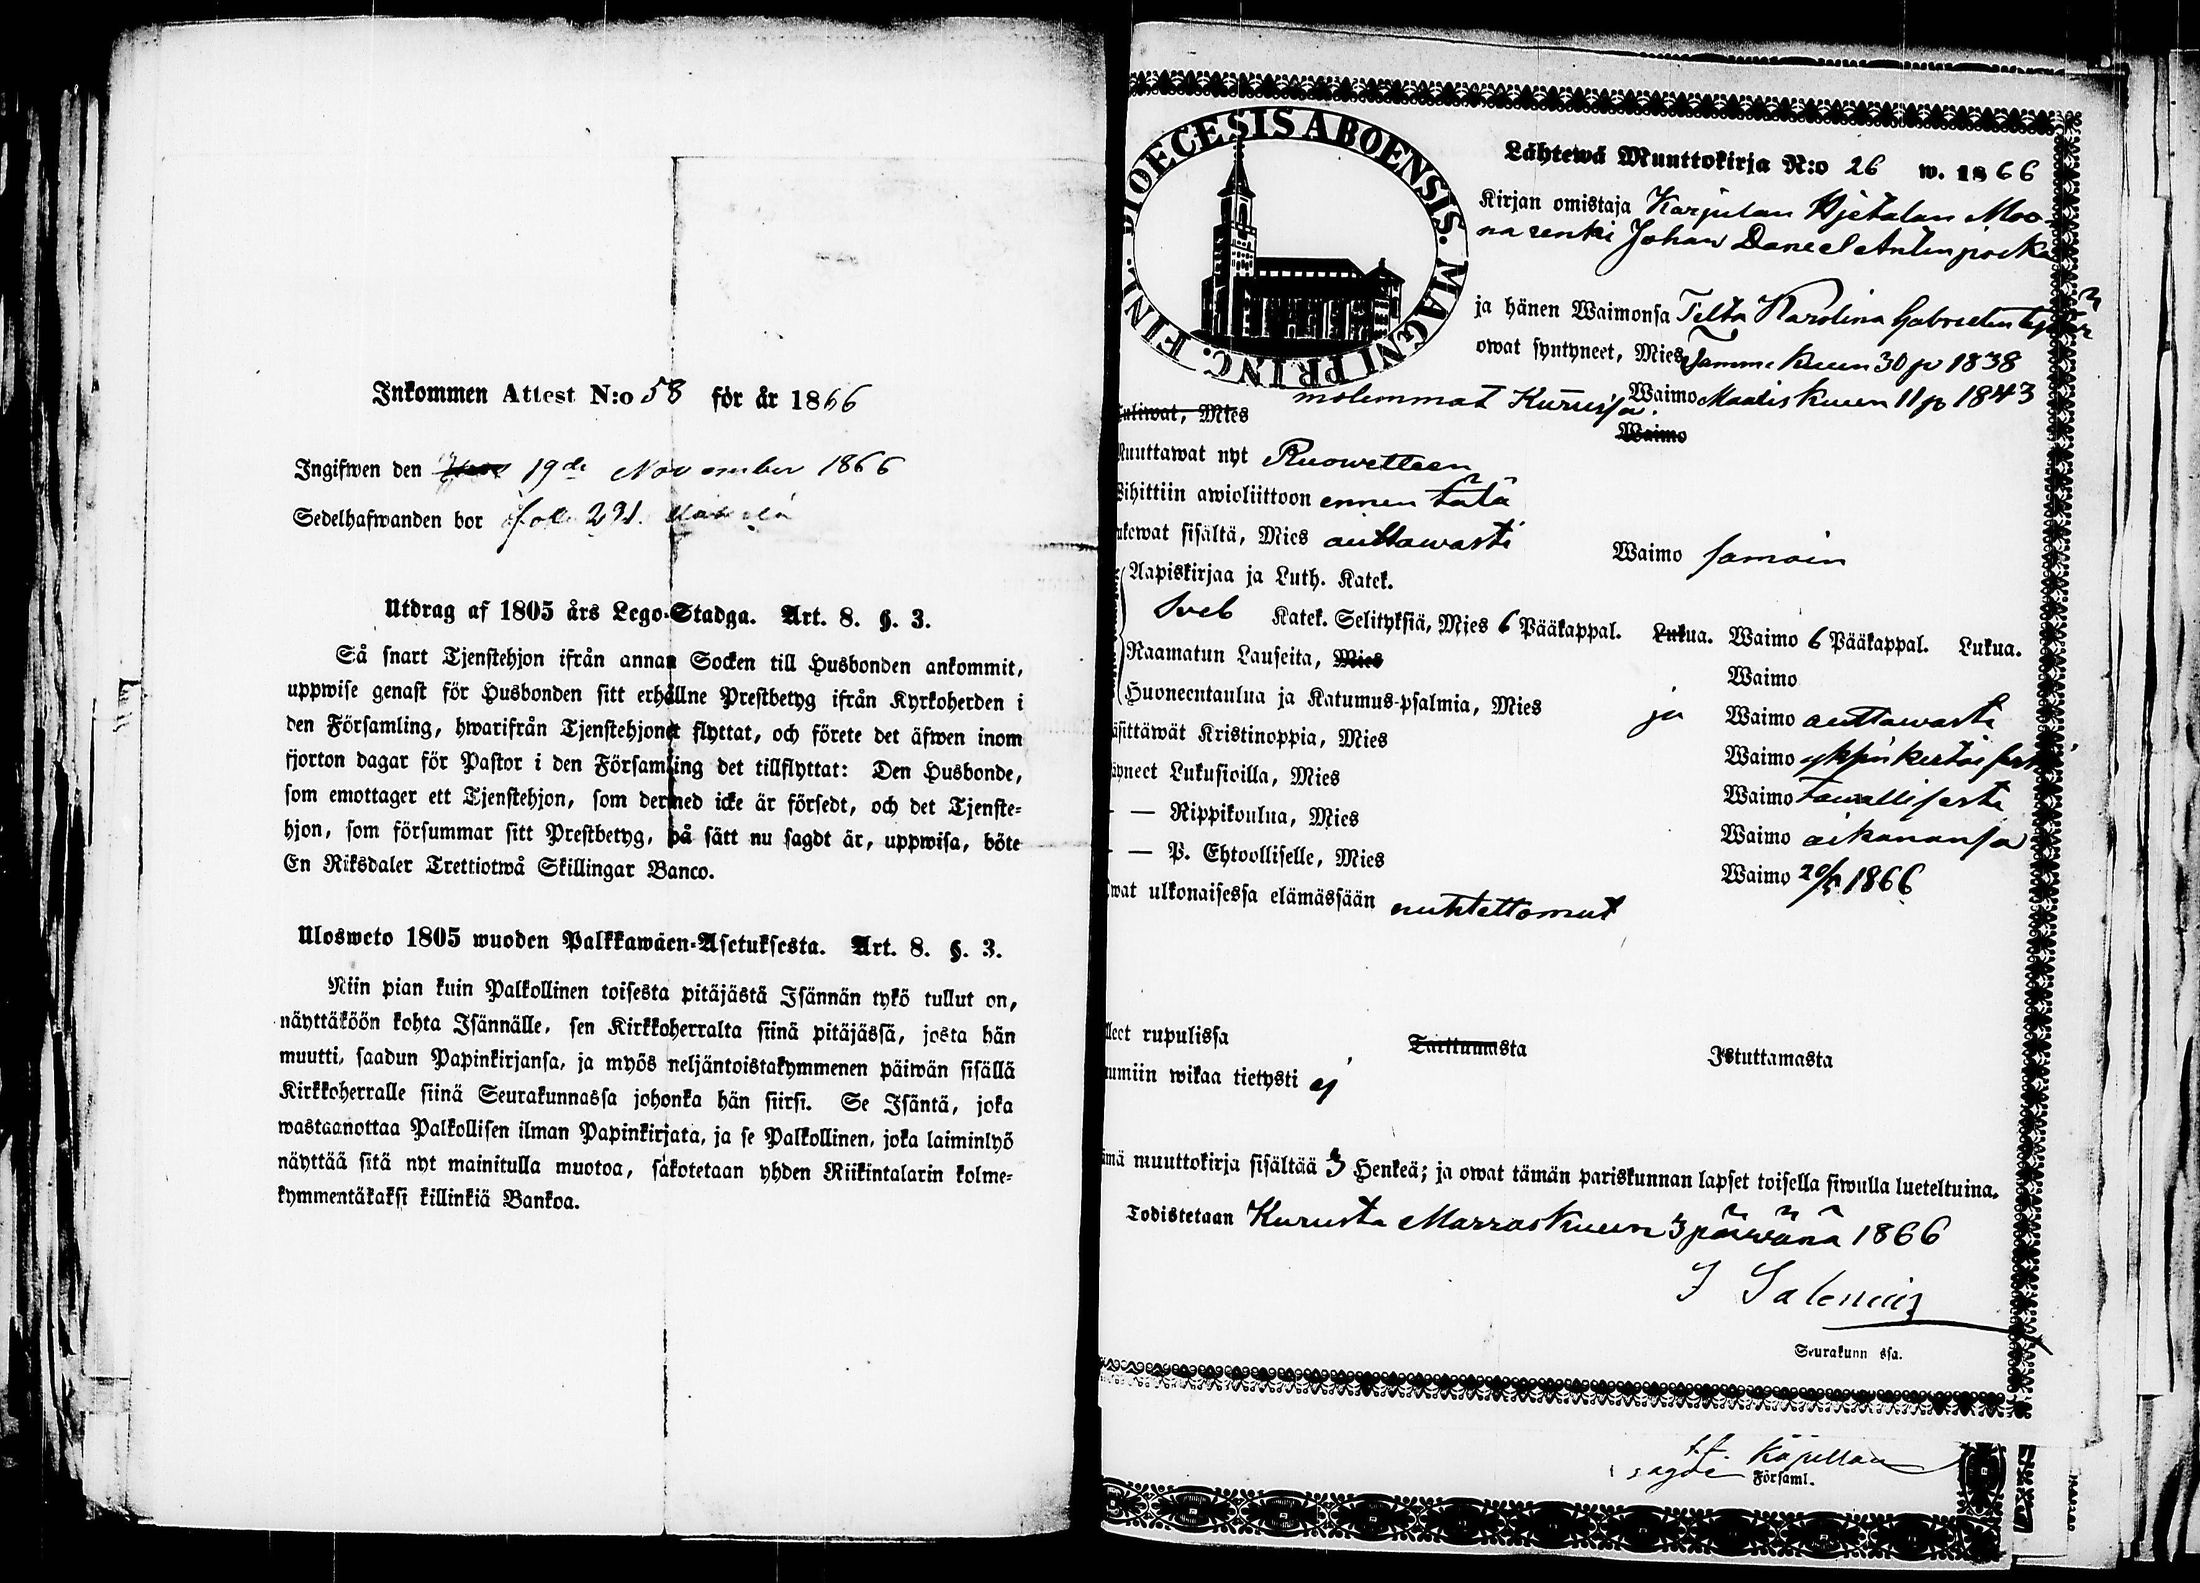 Inkommen Attest N:o 58 för år 1866
Ingifwen den 19de November 1866
Sedelhafwanden bor fol. 231.
Utdrag af 1805 års Lego-Stadga. Art. 8. §. 3.
Så snart Tjenstehjon ifrån annan Socken till Husbonden ankommit,
uppwise genast för Husbonden sitt erhållne Prestbetyg ifrån Kyrkoherden i
den Församling, hwarifrån Tjenstehjonet flyttat, och förete det äfwen inom
fjorton dagar för Pastor i den Församling det tillflyttat: Den Husbonde,
som emottager ett Tjenstehjon, som dermed icke är försedt, och det Tjenste-
hjon, som försummar sitt Prestbetyg, på sätt nu sagdt är, uppwisa, böte
En Riksdaler Trettiotwå Skillingar Banco.
Ulosweto 1805 wuoden Palkkawäen-Asetuksesta. Art. 8. §. 3.
Niin pian kuin Palkollinen toisesta pitäjästä Isännän tykö tullut on,
näyttäköön kohta Isännälle, sen Kirkkoherralta siinä pitäjässä, josta hän
muutti, saadun Papinkirjansa, ja myös neljäntoistakymmenen päiwän sisällä
Kirkkoherralle siinä Seurakunnassa johonka hän siirsi. Se Isäntä, joka
wastaanottaa Palkollisen ilman Papinkirjata, ja se Palkollinen, joka laiminlyö
näyttää sitä nyt mainitulla muotoa, sakotetaan yhden Riikintalarin kolme-
kymmentäkaksi killinkiä Bankoa.
DIOECESIS ABOENSIS. MAGNI PRINC. FINL.
Lähtewä Muuttokirja N:o 26 w. 1866
Kirjan omistaja Karjulan Moo-
na renki Johan Daneel Antinpoika
ja hänen Waimonsa Karolina Gabrielin
owat syntyneet, Mies Tammikuun 30 p 1838
molemmat Kurussa. Waimo Maaliskuun 11 p 1843
Tuliwat, Mies Waimo
Muuttawat nyt Ruowetteen
Wihittiin awioliittoon ennen tätä
ukewat sisältä, Mies auttawasti Waimo samoin
Aapiskirjaa ja Luth. Katek.
Sveb Katek. Selityksiä, Mies 6 Pääkappal. Lukua. Waimo 6 Pääkappal. Lukua.
Raamatun Lauseita, Mies Waimo
Huoneentaulua ja Katumus-psalmia, Mies ja Waimo auttawasti
äsittäwät Kristinoppia, Mies Waimo yksinkertaisesti
äyneet Lukusioilla, Mies Waimo tawallisesti
— Rippikoulua, Mies Waimo aikanansa
— P. Ehtoolliselle, Mies Waimo 20/5 1866
wat ulkonaisessa elämässään nuhteettomat
lleet rupulissa Tarttumasta Istuttamasta
umiin wikaa tietysti ej
mä muuttokirja sisältää 3 Henkeä; ja owat tämän pariskunnan lapset toisella siwulla lueteltuina.
Todistetaan Kurusta Marraskuun 3 päiwänä 1866
Seurakunn ssa.
t.f. Kapellan
Församl.